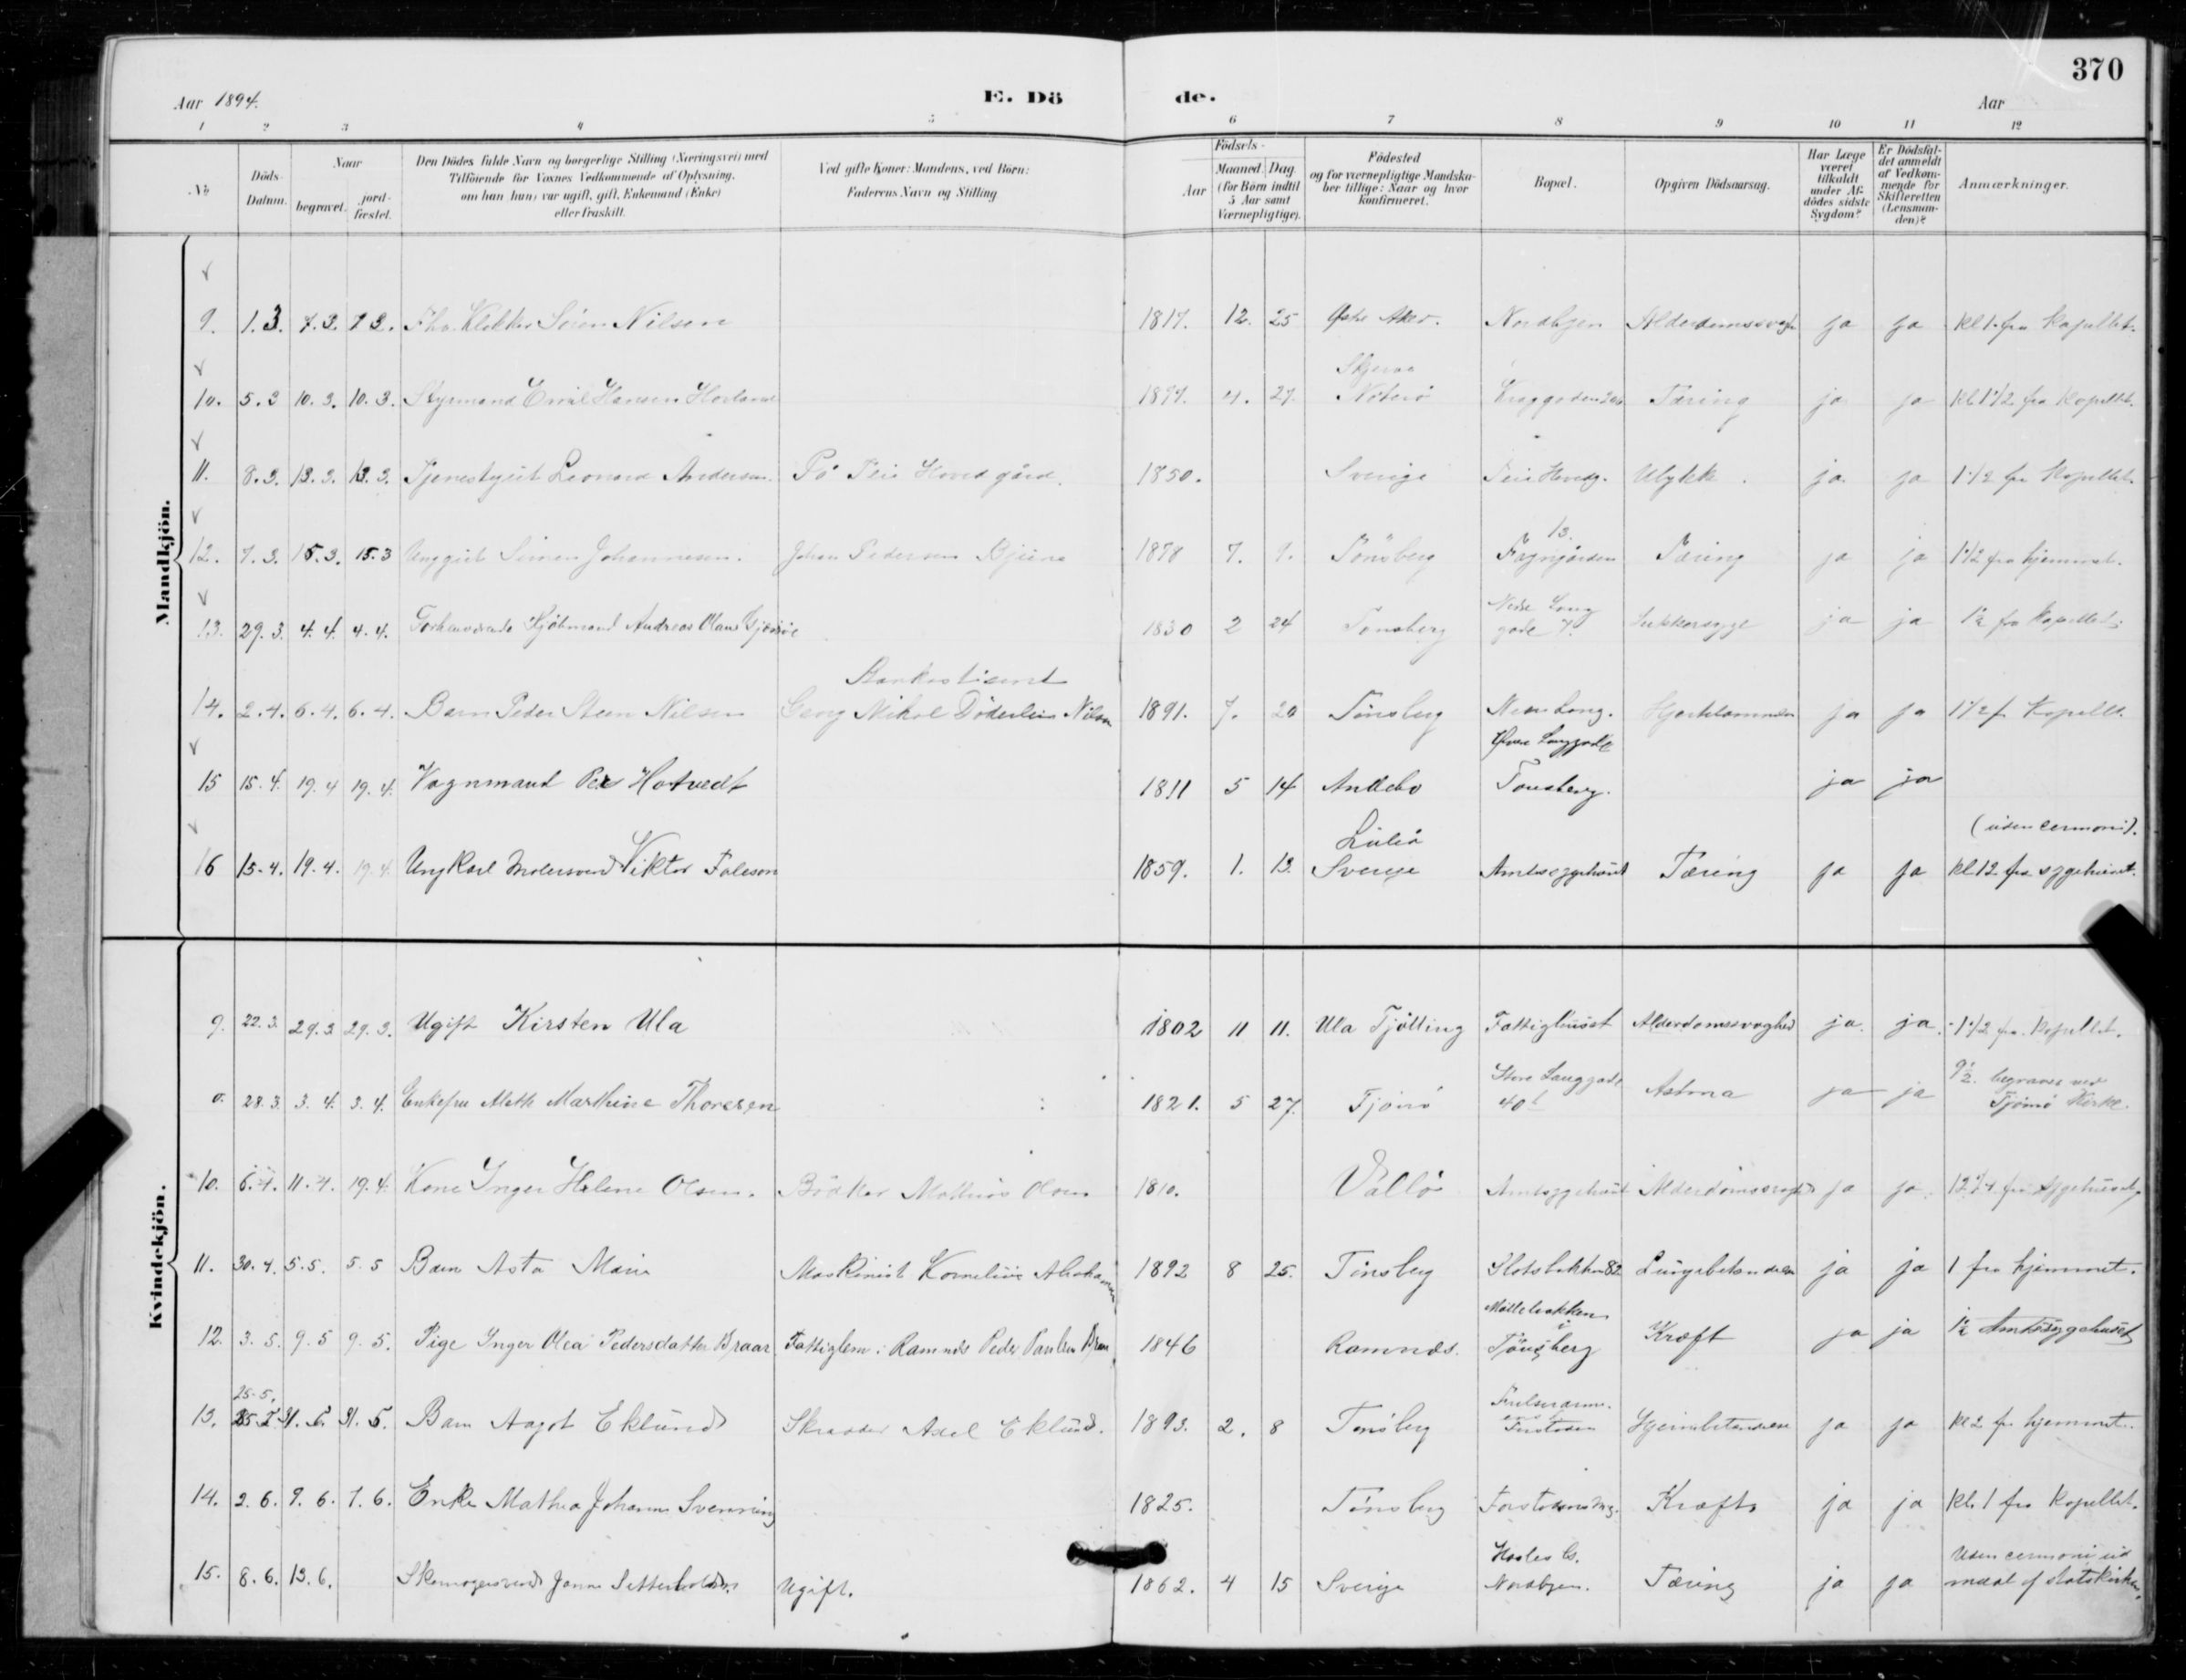 370
Aar 1894.
E. Dö
de.
Aar
1 2 3 4 5 6 7 8 9 10 11 12
No
Döds-Datum.
Naar
begravet.
jord-fæstet.
Den Dödes fulde Navn og borgerlige Stilling (Næringsvei) med
Tilföiende for Voxnes Vedkommende af Oplysning,
om han (hun) var ugift, gift, Enkemand (Enke)
eller fraskilt.
Ved gifte Koner: Mandens, ved Börn:
Faderens Navn og Stilling
Födsels-
Aar
Maaned. Dag
(for Börn indtil
5 Aar samt
Værnepligtige).
Födested
og for værnepligtige Mandska-
ber tillige: Naar og hvor
konfirmeret.
Bopæl.
Opgiven Dödsaarsag.
Har Læge
været
tilkaldt
under Af-
dödes sidste
Sygdom?
Er Dödsfal-
det anmeldt
af Vedkom-
mende for
Skifteretten
(Lensman-
den)?
Anmærkninger.
Mandkjön.
9. 1.3. 7.3. 7.3. Fhv. Klokker Sören Nilsen 1817. 12. 25 Østre Aker. Nordbyen ja ja kl 1. fra kapellet.
10. 5.3 10.3. 10.3. Styrmand Emil Hansen 4. 27. Nøterö Tæring ja ja kl. 1 1/2 fra kapellet.
11. 8.3. 13.3. 13.3. Tjenestgut Leonard Andersen. På Teie Hovedgård. 1850. Sverige Teie Hovedg. Ulykke. ja ja 1 1/2 fra Kapellet.
13.
12. 7.3. 15.3. 15.3 Unggut Simen Johannesen. Johan Pedersen 1878 7. 9. Tönsberg Tæring ja ja 1 1/2 fra hjemmet.
Nedre Lang
13. 29.3. 4.4. 4.4. Sjöhmand Andreas Olaus 1830 2 24 Tönsberg gade 7. Sukkersyge ja ja 1 1/2 fra Kapellet.
14. 2.4. 6.4. 6.4. Barn Peder Steen Nilsen Georg Nikol Döderlein Nilsen 1891. 7. 20 Tönsberg Nedre Lang. ja ja 1 1/2 f. Kapellet.
Øvre Langgade
15 15.4. 19.4 19.4. Vognmand Per Hotvedt 1811 5 14 Andebo Tönsberg. ja ja
(uden cermoni).
16 15.4. 19.4. 19.4. Ungkarl Viktor 1859. 1. 13. Sverige Amtssygehuset Tæring ja ja kl 12 fra sygehuset.
Kvindekjön.
9. 22.3. 29.3 29.3. Ugift Kirsten Ula 1802 11 11. Ula Tjölling Fattighuset Alderdomssvaghed ja ja. 1 1/2 fra Kapellet.
Store Langgade 9 1/2 begraves ved
0. 28.3. 3.4. 3.4. Enkefru Aleth Marthine Thoresen 1821. 5 27. Tjömö 40 Astma ja ja Tjömö Kirke.
10. 6.4. 11.4. 19.4. Kone Inger Helene Olsen. Bödker Mathias Olsen 1810. Vallö Amtssygehuset Alderdomssvaghed ja ja. 12 1/4 fra sygehuset.
11. 30.4. 5.5. 5.5 Barn Asta Marie Maskinist Kornelius Abrahamsen 1892 8 25. Tönsberg Slotsbakken 82 Lungebetændelse ja ja 1 fra hjemmet.
Möllebakken
12. 3.5. 9.5 9.5. Pige Inger Olea Pedersdatter Braar. Fattiglem i Ramnæs Peder Paulsen 1846 Ramnæs. Tönsberg Kræft ja ja 1 1/2 Amtssygehuset
25.5.
13. 31.5. 31.5. Barn Aagot Eklund Skrædder Axel Eklund. 1893. 2. 8 Tönsberg ja ja kl 2 fr. hjemmet.
14. 2.6. 7.6. 7.6. Enke Mathea Johanne 1825. Tönsberg Kræft ja ja kl. 1 fra Kapellet.
Uden cermoni
15. 8.6. 13.6. Ugift. 1862. 4 15 Sverige Nordbyen. Tæring ja ja